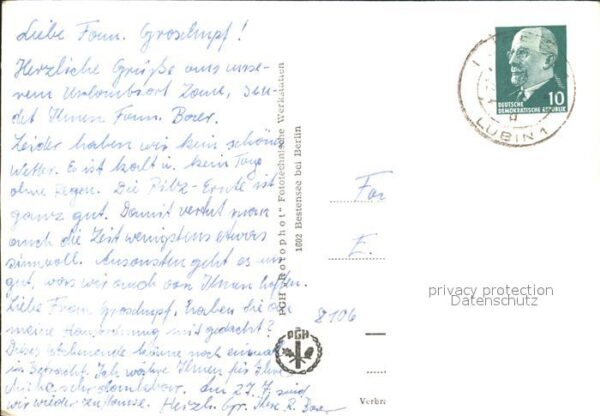 Liebe Fam. Groschupf!
Herzliche Grüße aus unse-
rem Urlaubsort Zome, sen-
det Ihnen Fam. Boer.
Leider haben wir kein schönes
Wetter. Es ist kalt u. kein Tag
ohne Regen. Die Pilz-Ernte ist
ganz gut. Damit vertut man
auch die Zeit wenigstens etwas
sinnvoll. Ansonsten geht es uns
gut, was wir auch von Ihnen hoffen.
Liebe Frau Groschupf, haben Sie an
meine Hausordnung mit gedacht?
Dieses Wochenende käme noch einmal
in Betracht. Ich wäre Ihnen für Ihre
Mühe sehr dankbar. Am 27.7. sind
wir wieder zuhause. Herzl. Gr. Ihre R. Boer
PGH "Rotophot" Fototechnische Werkstätten
1602 Bestensee bei Berlin
PGH
10
DEUTSCHE
DEMOKRATISCHE REPUBLIK
LÜBIN 1
Fa
E.
8106
Verbra
privacy protection
Datenschutz